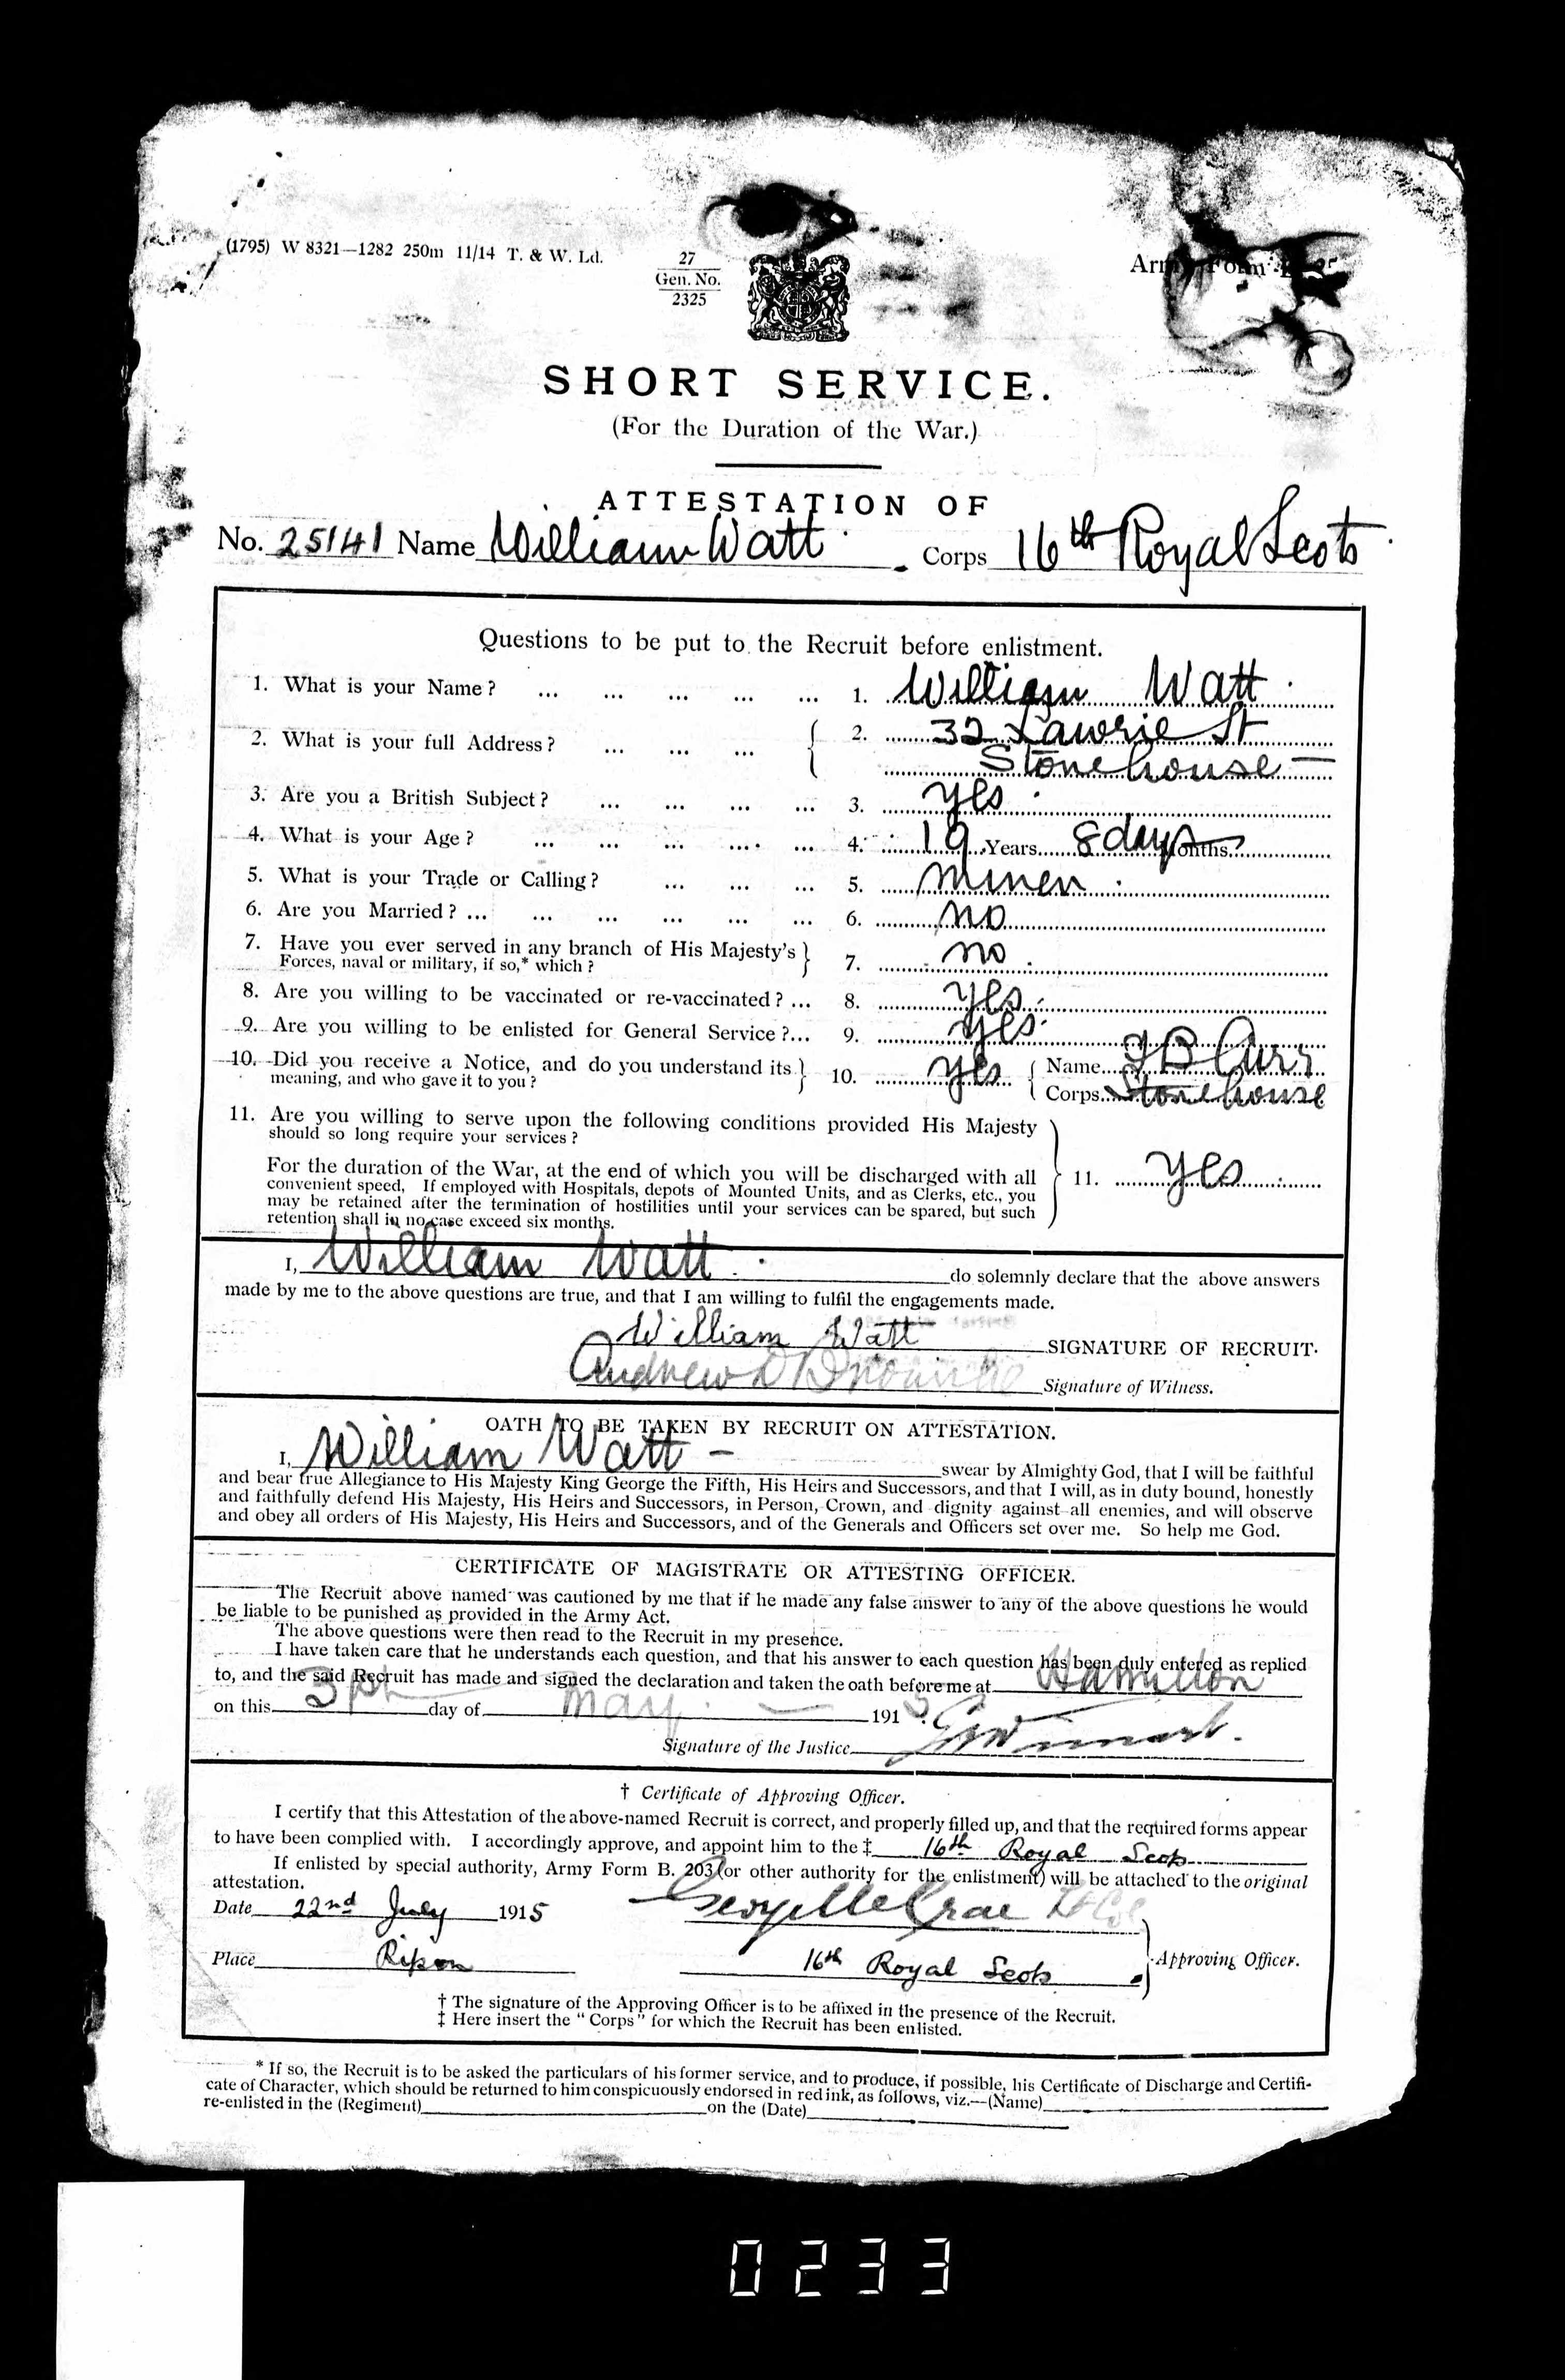 (1795) W 8321—1282 250m 11/14 T. & W. Ld.
27
Gen. No.
2325
Army Form
SHORT SERVICE.
(For the Duration of the War.)
ATTESTATION OF
No. 25141 Name William Watt. Corps 16th Royal Scots
Questions to be put to the Recruit before enlistment.
1. What is your Name? ... ... ... ... ... 1. William Watt.
2. What is your full Address? ... ... ... { 2. 32 Lawrie St
Stonehouse —
3. Are you a British Subject? ... ... ... ... 3. yes.
4. What is your Age? ... ... ... ... ... 4. 19 Years 8 days Months
5. What is your Trade or Calling? ... ... ... 5. Miner.
6. Are you Married? ... ... ... ... ... ... 6. no
7. Have you ever served in any branch of His Majesty's } 7. no.
Forces, naval or military, if so,* which?
8. Are you willing to be vaccinated or re-vaccinated? ... 8. yes.
9. Are you willing to be enlisted for General Service?... 9. yes.
10. Did you receive a Notice, and do you understand its } 10. yes { Name J B Curr
meaning, and who gave it to you? Corps Stonehouse
11. Are you willing to serve upon the following conditions provided His Majesty
should so long require your services?
For the duration of the War, at the end of which you will be discharged with all } 11. yes
convenient speed. If employed with Hospitals, depots of Mounted Units, and as Clerks, etc., you
may be retained after the termination of hostilities until your services can be spared, but such
retention shall in no case exceed six months.
I, William Watt. do solemnly declare that the above answers
made by me to the above questions are true, and that I am willing to fulfil the engagements made.
William Watt SIGNATURE OF RECRUIT.
Andrew D Signature of Witness.
OATH TO BE TAKEN BY RECRUIT ON ATTESTATION.
I, William Watt — swear by Almighty God, that I will be faithful
and bear true Allegiance to His Majesty King George the Fifth, His Heirs and Successors, and that I will, as in duty bound, honestly
and faithfully defend His Majesty, His Heirs and Successors, in Person, Crown, and dignity against all enemies, and will observe
and obey all orders of His Majesty, His Heirs and Successors, and of the Generals and Officers set over me. So help me God.
CERTIFICATE OF MAGISTRATE OR ATTESTING OFFICER.
The Recruit above named was cautioned by me that if he made any false answer to any of the above questions he would
be liable to be punished as provided in the Army Act.
The above questions were then read to the Recruit in my presence.
I have taken care that he understands each question, and that his answer to each question has been duly entered as replied
to, and the said Recruit has made and signed the declaration and taken the oath before me at Hamilton
on this day of May 1915.
Signature of the Justice
† Certificate of Approving Officer.
I certify that this Attestation of the above-named Recruit is correct, and properly filled up, and that the required forms appear
to have been complied with. I accordingly approve, and appoint him to the ‡ 16th Royal Scots
If enlisted by special authority, Army Form B. 203 (or other authority for the enlistment) will be attached to the original
attestation.
Date 22nd July 1915 George McCrae Lt Col
Place Ripon 16th Royal Scots } Approving Officer.
† The signature of the Approving Officer is to be affixed in the presence of the Recruit.
‡ Here insert the "Corps" for which the Recruit has been enlisted.
* If so, the Recruit is to be asked the particulars of his former service, and to produce, if possible, his Certificate of Discharge and Certifi-
cate of Character, which should be returned to him conspicuously endorsed in red ink, as follows, viz.—(Name)
re-enlisted in the (Regiment) on the (Date)
0233